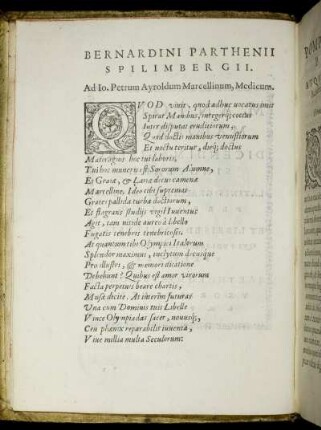 BERNARDINI PARTHENII
SPILIMBERGII.
Ad Io. Petrum Ayroldum Marcellinum, Medicum.
QVOD vivit, quod adhuc vocatus init
Spirat Manibus, integerq; coetus
Inter disputat eruditiorum,
Quod doctis manibus venustiorum
Et noctu teritur, diuq; doctus
Mater
Tui hoc muneris est Sororum Alumne,
Et Graiæ, & Latiæ decus camenæ
Marcelline. Ideo tibi supinas
Grates pallida turba doctorum,
Et flagrans studijs vigil Iuuentus
Agit, tam nitido aureoq́ libello
Fugatis tenebris tenebricosis.
At quantum tibi Olympia Italorum
Splendor maximus, inclytum decusque
Pro illustri, & memori dicatione
Debebunt? Quibus est amor virorum
Facta perpetuis beare chartis,
Musæ dicite. At interim futuræ
Vna cum Dominis tuis Libelle
Viuce Olympiadas sacer, nouusq́;,
Ceu phœnix reparabilis iuuenta,
Viue millia multa Seculorum.